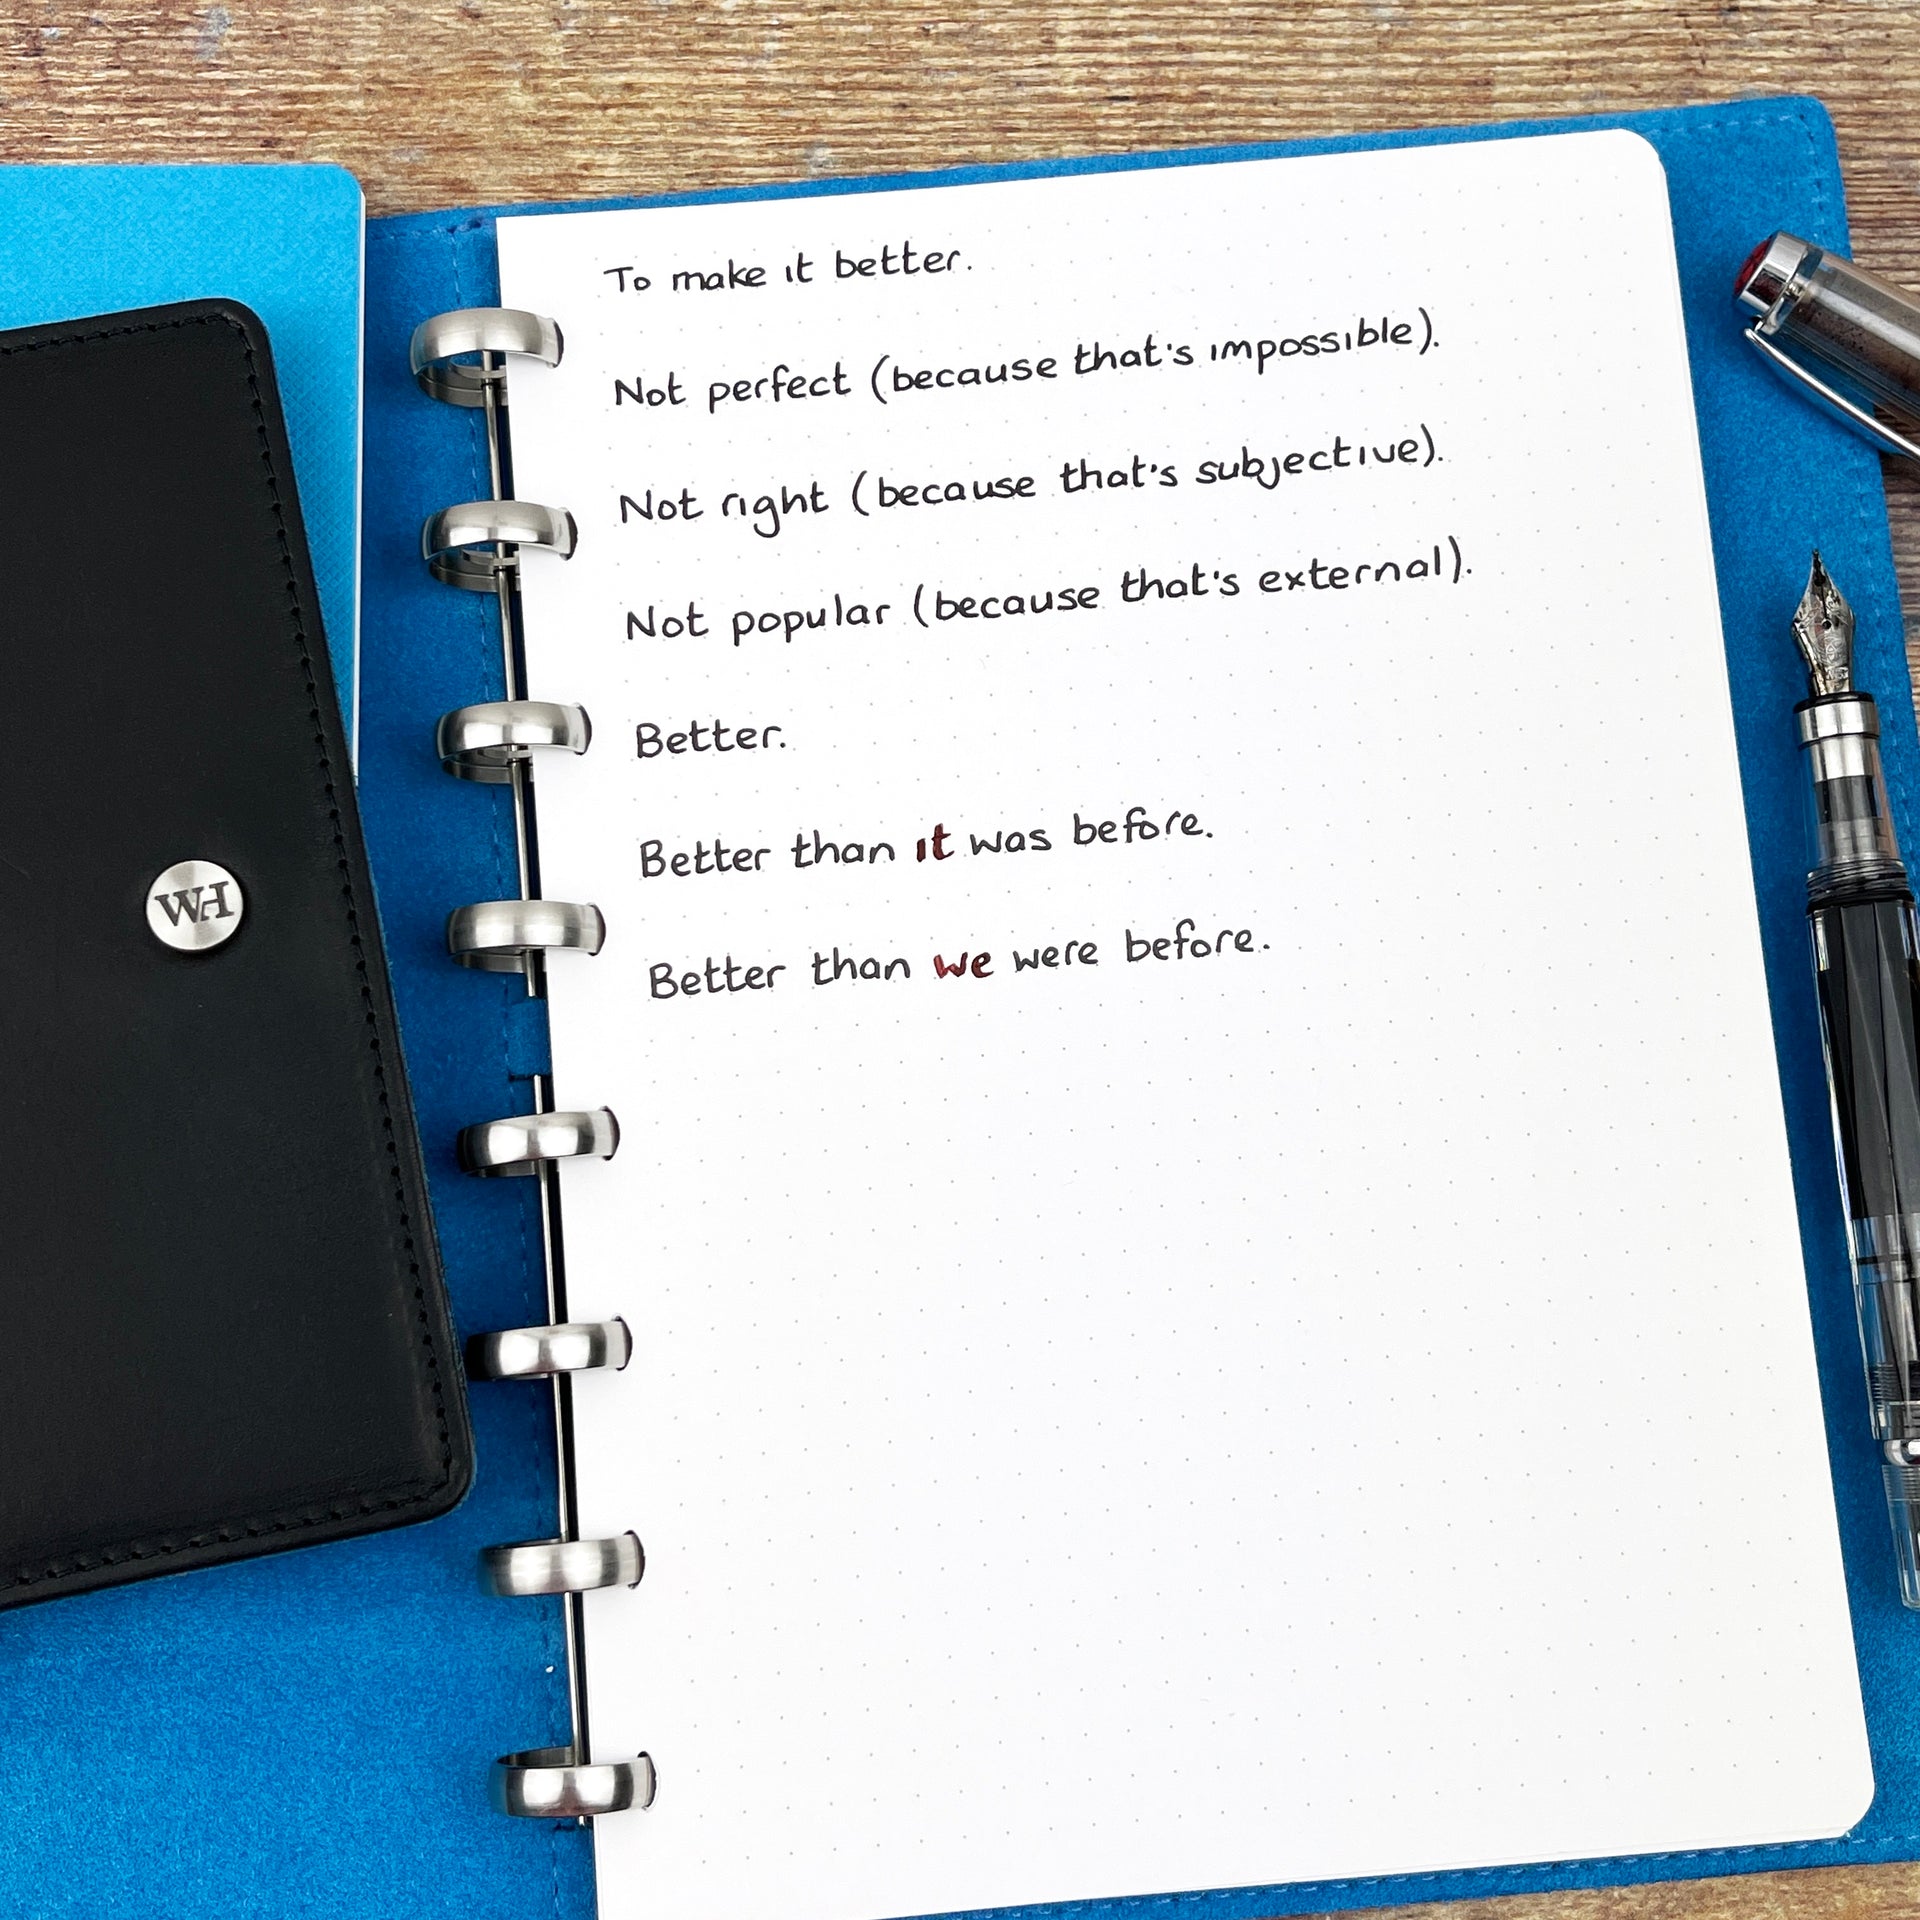 To make it better.
Not perfect (because that's impossible).
Not right (because that's subjective).
Not popular (because that's external).
Better.
Better than it was before.
Better than we were before.
WH